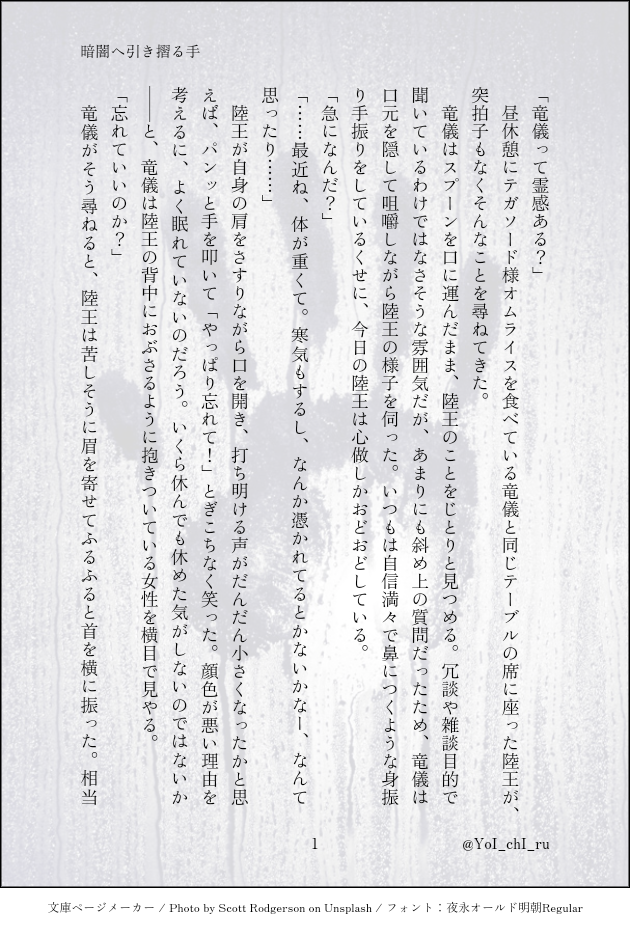 暗闇へ引き摺る手
「竜儀って霊感ある？」
　昼休憩にテガソード様オムライスを食べている竜儀と同じテーブルの席に座った陸王が、
突拍子もなくそんなことを尋ねてきた。
　竜儀はスプーンを口に運んだまま、陸王のことをじとりと見つめる。冗談や雑談目的で
聞いているわけではなさそうな雰囲気だが、あまりにも斜め上の質問だったため、竜儀は
口元を隠して咀嚼しながら陸王の様子を伺った。いつもは自信満々で鼻につくような身振
り手振りをしているくせに、今日の陸王は心做しかおどおどしている。
「急になんだ？」
「……最近ね、体が重くて。寒気もするし、なんか憑かれてるとかないかなー、なんて
思ったり……」
　陸王が自身の肩をさすりながら口を開き、打ち明ける声がだんだん小さくなったかと思
えば、パンッと手を叩いて「やっぱり忘れて！」とぎこちなく笑った。顔色が悪い理由を
考えるに、よく眠れていないのだろう。いくら休んでも休めた気がしないのではないか
――と、竜儀は陸王の背中におぶさるように抱きついている女性を横目で見やる。
「忘れていいのか？」
　竜儀がそう尋ねると、陸王は苦しそうに眉を寄せてふるふると首を横に振った。相当
1
@YoI_chI_ru
文庫ページメーカー / Photo by Scott Rodgerson on Unsplash / フォント：夜永オールド明朝Regular